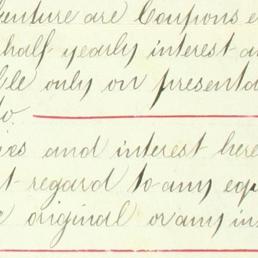 enture are Coupons e
half yearly interest a
ble only on presenta
to.
es and interest here
t regard to any equ
e original or any in